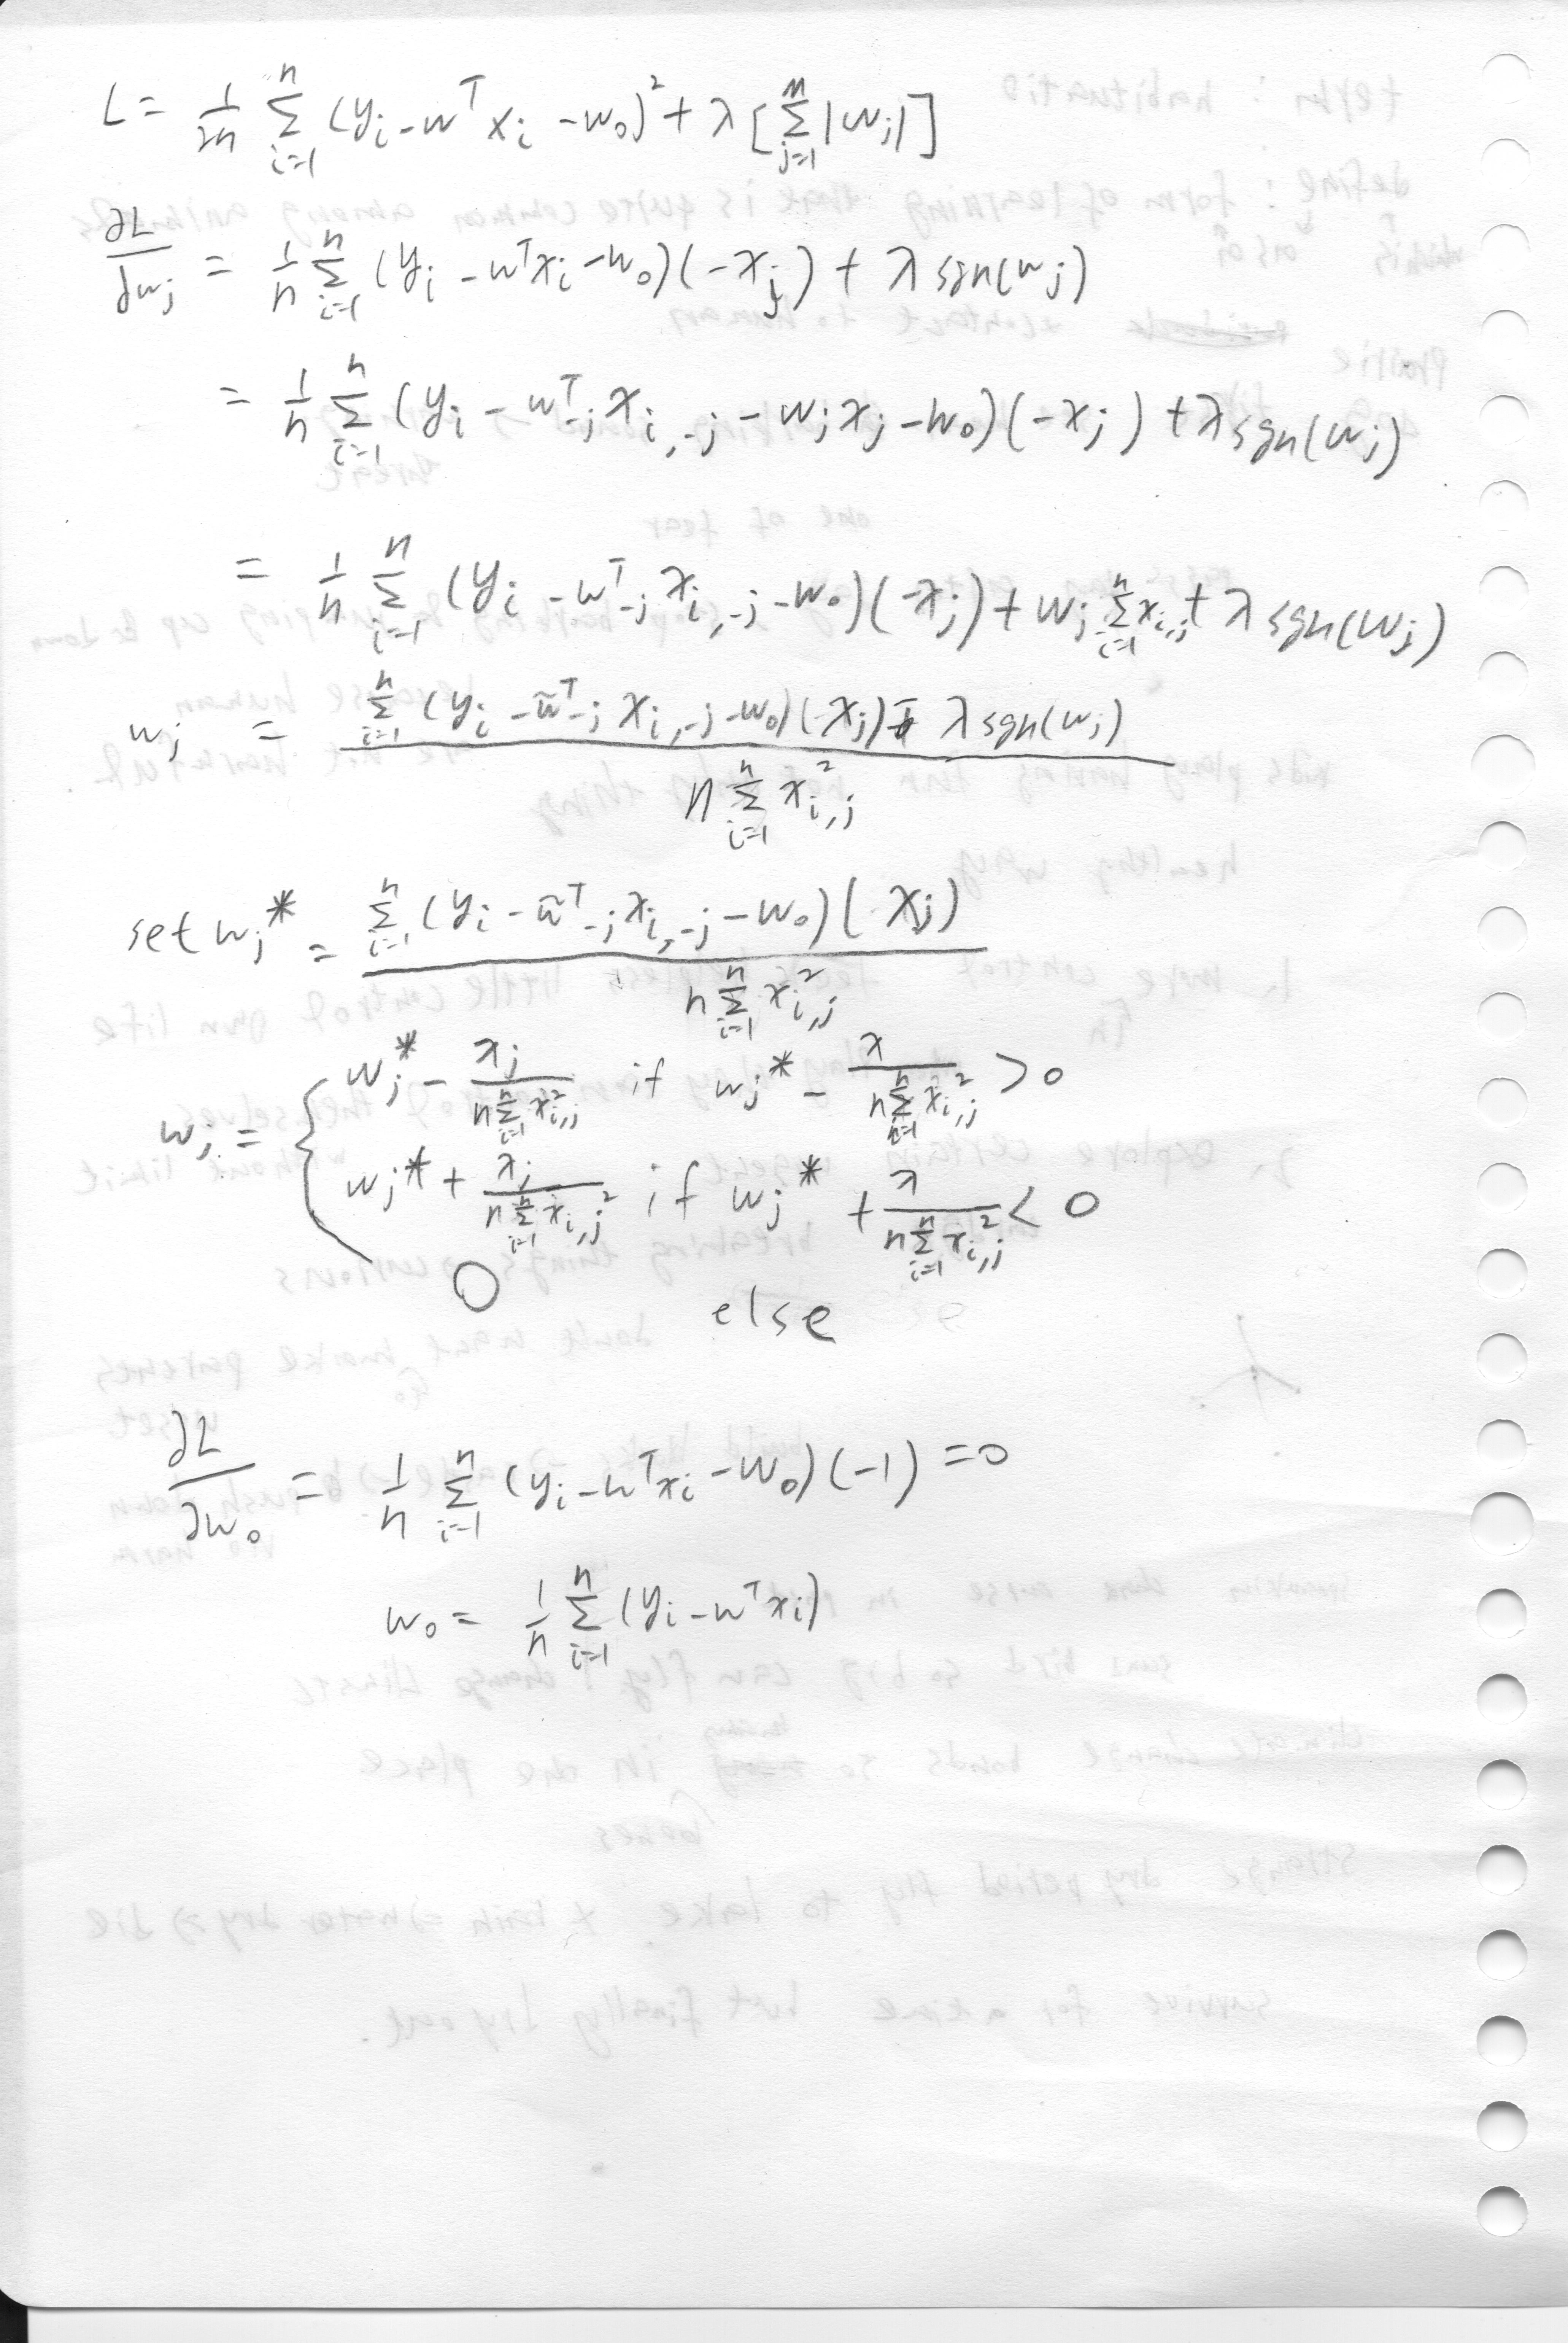 L = 1/2n Σ_{i=1}^{n} (y_i - w^T x_i - w_0)^2 + λ [Σ_{j=1}^{m} |w_j|]
∂L/∂w_j = 1/n Σ_{i=1}^{n} (y_i - w^T x_i - w_0)(-x_j) + λ sgn(w_j)
= 1/n Σ_{i=1}^{n} (y_i - w^T_{-j} x_{i,-j} - w_j x_j - w_0)(-x_j) + λ sgn(w_j)
= 1/n Σ_{i=1}^{n} (y_i - w^T_{-j} x_{i,-j} - w_0)(-x_j) + w_j Σ_{i=1}^{n} x_{i,j} + λ sgn(w_j)
w_j = Σ_{i=1}^{n} (y_i - w̃^T_{-j} x_{i,-j} - w_0)(x_j) - λ sgn(w_j) / n Σ_{i=1}^{n} x_{i,j}^2
set w_j^* = Σ_{i=1}^{n} (y_i - w̃^T_{-j} x_{i,-j} - w_0)(x_j) / n Σ_{i=1}^{n} x_{i,j}^2
w_j = { w_j^* - λ_j / n Σ_{i=1}^{n} x_{i,j}^2 if w_j^* - λ / n Σ_{i=1}^{n} x_{i,j}^2 > 0
w_j^* + λ_j / n Σ_{i=1}^{n} x_{i,j}^2 if w_j^* + λ / n Σ_{i=1}^{n} x_{i,j}^2 < 0
0 else
∂L/∂w_0 = 1/n Σ_{i=1}^{n} (y_i - w^T x_i - w_0)(-1) = 0
w_0 = 1/n Σ_{i=1}^{n} (y_i - w^T x_i)